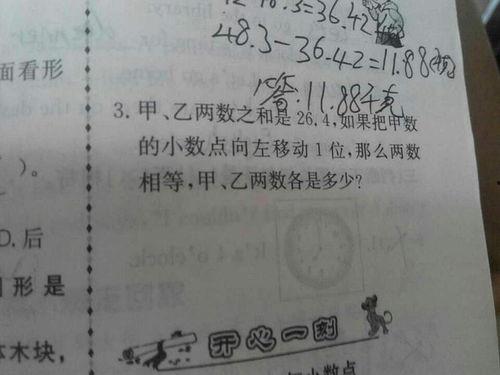 48.3-36.42=11.88
答:11.88千克
3. 甲、乙两数之和是26.4,如果把甲数
的小数点向左移动1位,那么两数
相等,甲、乙两数各是多少?
面看形
)。
D. 后
形是
木块,
开心一刻